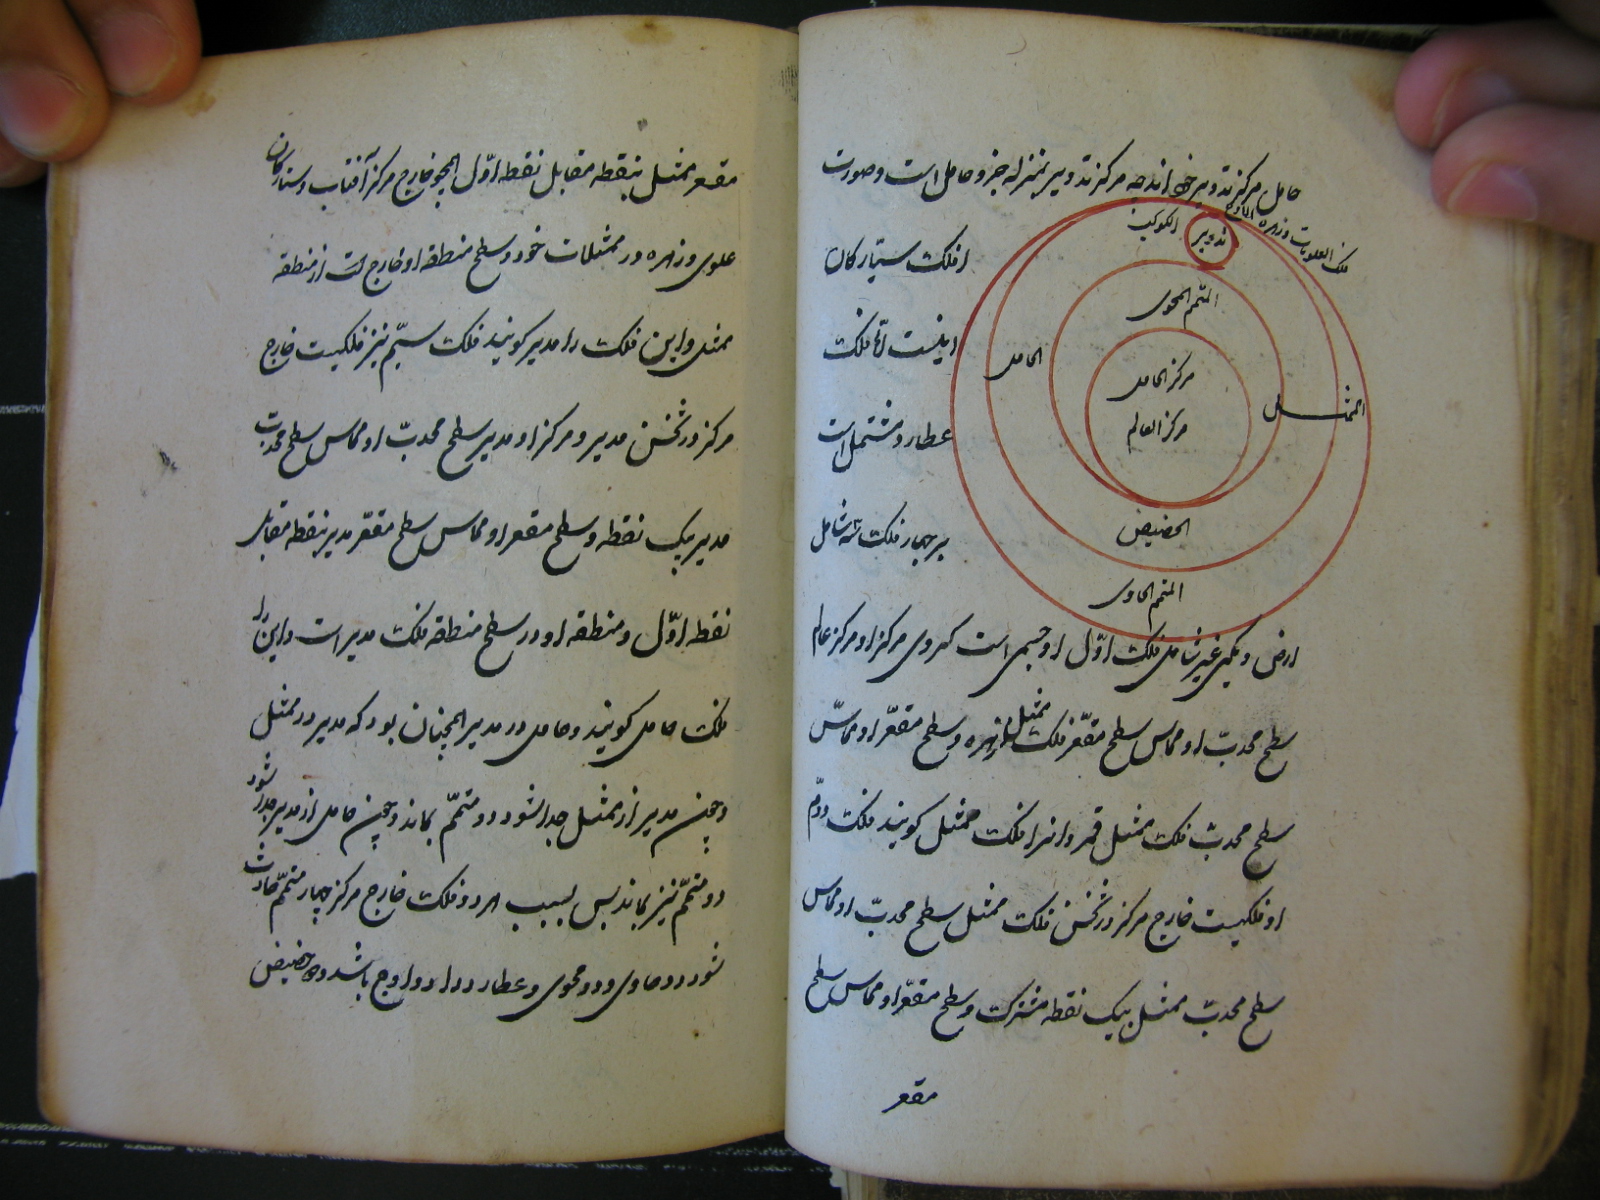 حامل مرکز تدویر خواند چه مرکز تدویر بمنزله جزو حامل است و صورت
فلک العلویات و زهره
الاوج
الکوکب
تدویر
المتمم المحوی
الحامل
مرکز الحامل
مرکز العالم
الممثل
الحضیض
المتمم الحاوی
افلاک سیّارکان
اینست امّا فلک
عطارد مشتمل است
بر چهار فلک سه شامل
ارض و یکی غیر شامل فلک اوّل او جسمی است کروی مرکز او مرکز عالم
سطح محدبّ او مماس سطح مقعّر فلک ممثل زهره و سطح مقعّر او مماسّ
سطح محدبّ فلک ممثل قمر و انرا فلک ممثل کویند فلک دوّم
او فلکیست خارج مرکز در ثخن فلک ممثل سطح محدبّ او مماس
سطح محدبّ ممثل بیک نقطه مشترک و سطح مقعّر او مماس سطح
مقعر
مقعر ممثل بنقطه مقابل نقطه اوّل همچو خارج مرکز آفتاب و ستارکان
علوی و زهره در ممثلات خود و سطح منطقه او خارج است از منطقه
ممثل و این فلک را مدیر کویند فلک سیّم نیز فلکیست خارج
مرکز در ثخن مدیر و مرکز او مدیر سطح محدبّ او مماس سطح محدبّ
مدیر بیک نقطه و سطح مقعر او مماس سطح مقعّر مدیر بنقطه مقابل
نقطه اوّل و منطقه او در سطح منطقه فلک مدیر است و این را
فلک حامل کویند و حامل در مدیر همچنان بود که مدیر در ممثل
و چون مدیر از ممثل جدا شود دو متمّم بماند و چون حامل از مدیر جدا شود
دو متمّم نیز بماند پس بسبب هر دو فلک خارج مرکز چهار متمّم حادث
شود دو حاوی و دو محوی و عطارد را دو اوج باشد و دو حضیض